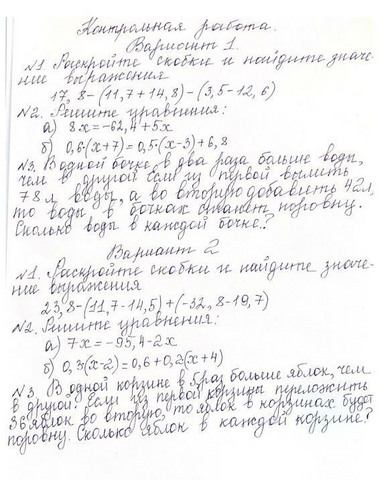 Контрольная работа.
Вариант 1.
N1 Раскройте скобки и найдите значе-
ние выражения
17,8-(11,7+14,8)-(3,5-12,6)
N2. Решите уравнения:
а) 8x=-62,4+5x
б) 0,6(x+7)=0,5(x-3)+6,8
N3. В одной бочке в два раза больше воды,
чем в другой. Если из первой вылить
78л воды, а во вторую добавить 42л,
то воды в бочках станет поровну.
Сколько воды в каждой бочке?
Вариант 2
N1. Раскройте скобки и найдите значе-
ние выражения
23,8-(11,7-14,5)+(-32,8-19,7)
N2. Решите уравнения:
а) 7x=-95,4-2x
б) 0,3(x-2)=0,6+0,2(x+4)
N3. В одной корзине в 5 раз больше яблок, чем
в другой. Если из первой корзины переложить
36 яблок во вторую, то яблок в корзинах будет
поровну. Сколько яблок в каждой корзине?